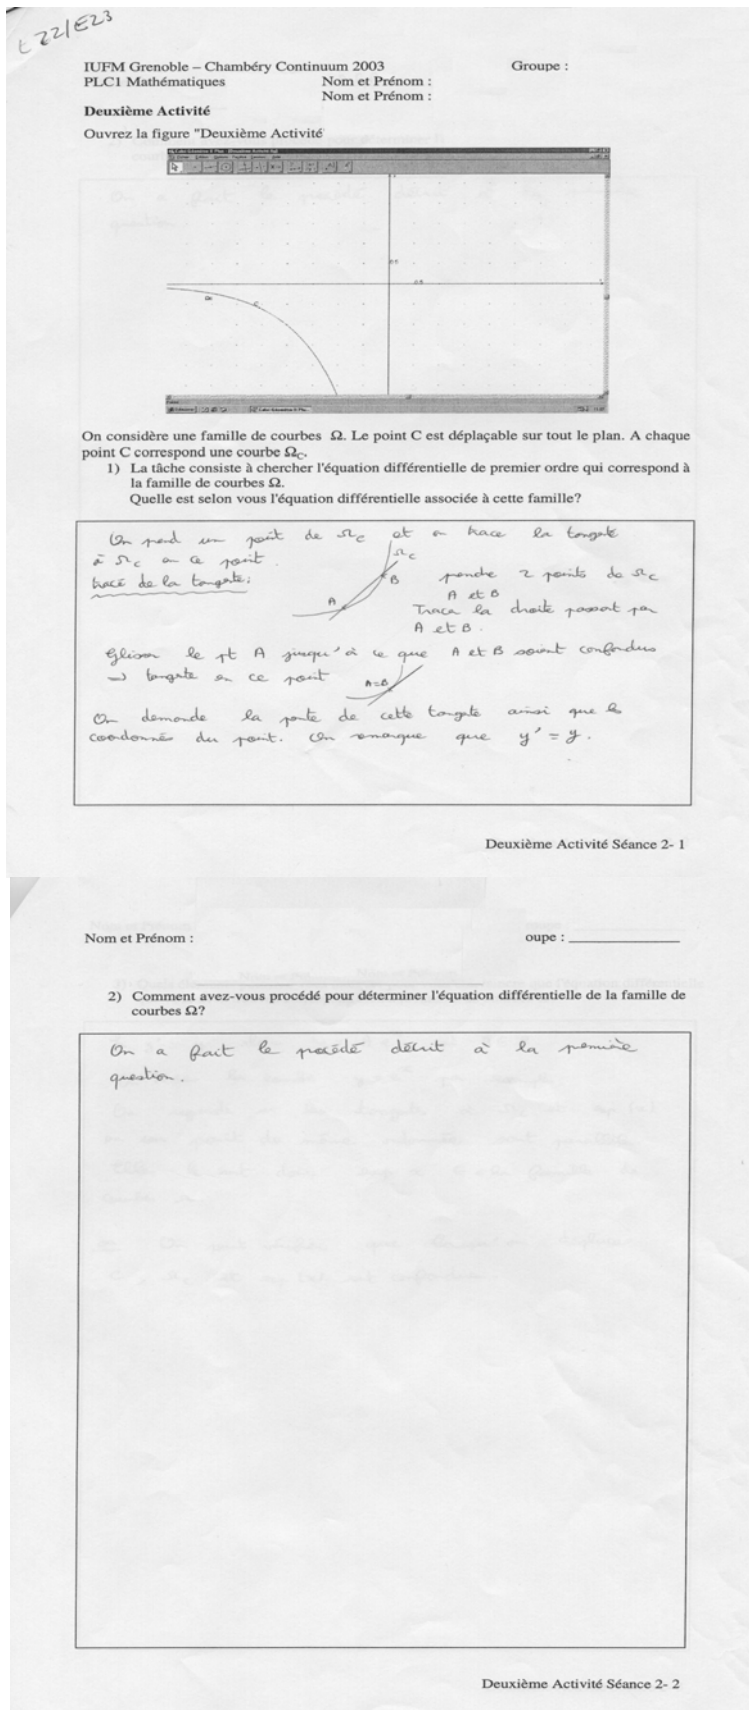 E22/E23
IUFM Grenoble – Chambéry Continuum 2003 Groupe :
PLC1 Mathématiques Nom et Prénom :
Nom et Prénom :
Deuxième Activité
Ouvrez la figure "Deuxième Activité
On considère une famille de courbes Ω. Le point C est déplaçable sur tout le plan. A chaque
point C correspond une courbe Ω_C.
1) La tâche consiste à chercher l'équation différentielle de premier ordre qui correspond à
la famille de courbes Ω.
Quelle est selon vous l'équation différentielle associée à cette famille?
On prend un point de Ω_C et on trace la tangente
à Ω_C en ce point.
tracé de la tangente :
Ω_C
A
B
prendre 2 points de Ω_C
A et B
Tracer la droite passant par
A et B.
Glisser le pt A jusqu'à ce que A et B soient confondus
→ tangente en ce point
A=B
On demande la pente de cette tangente ainsi que les
coordonnées du point. On remarque que y' = y.
Deuxième Activité Séance 2- 1
Nom et Prénom : oupe :
2) Comment avez-vous procédé pour déterminer l'équation différentielle de la famille de
courbes Ω?
On a fait le procédé décrit à la première
question.
Deuxième Activité Séance 2- 2